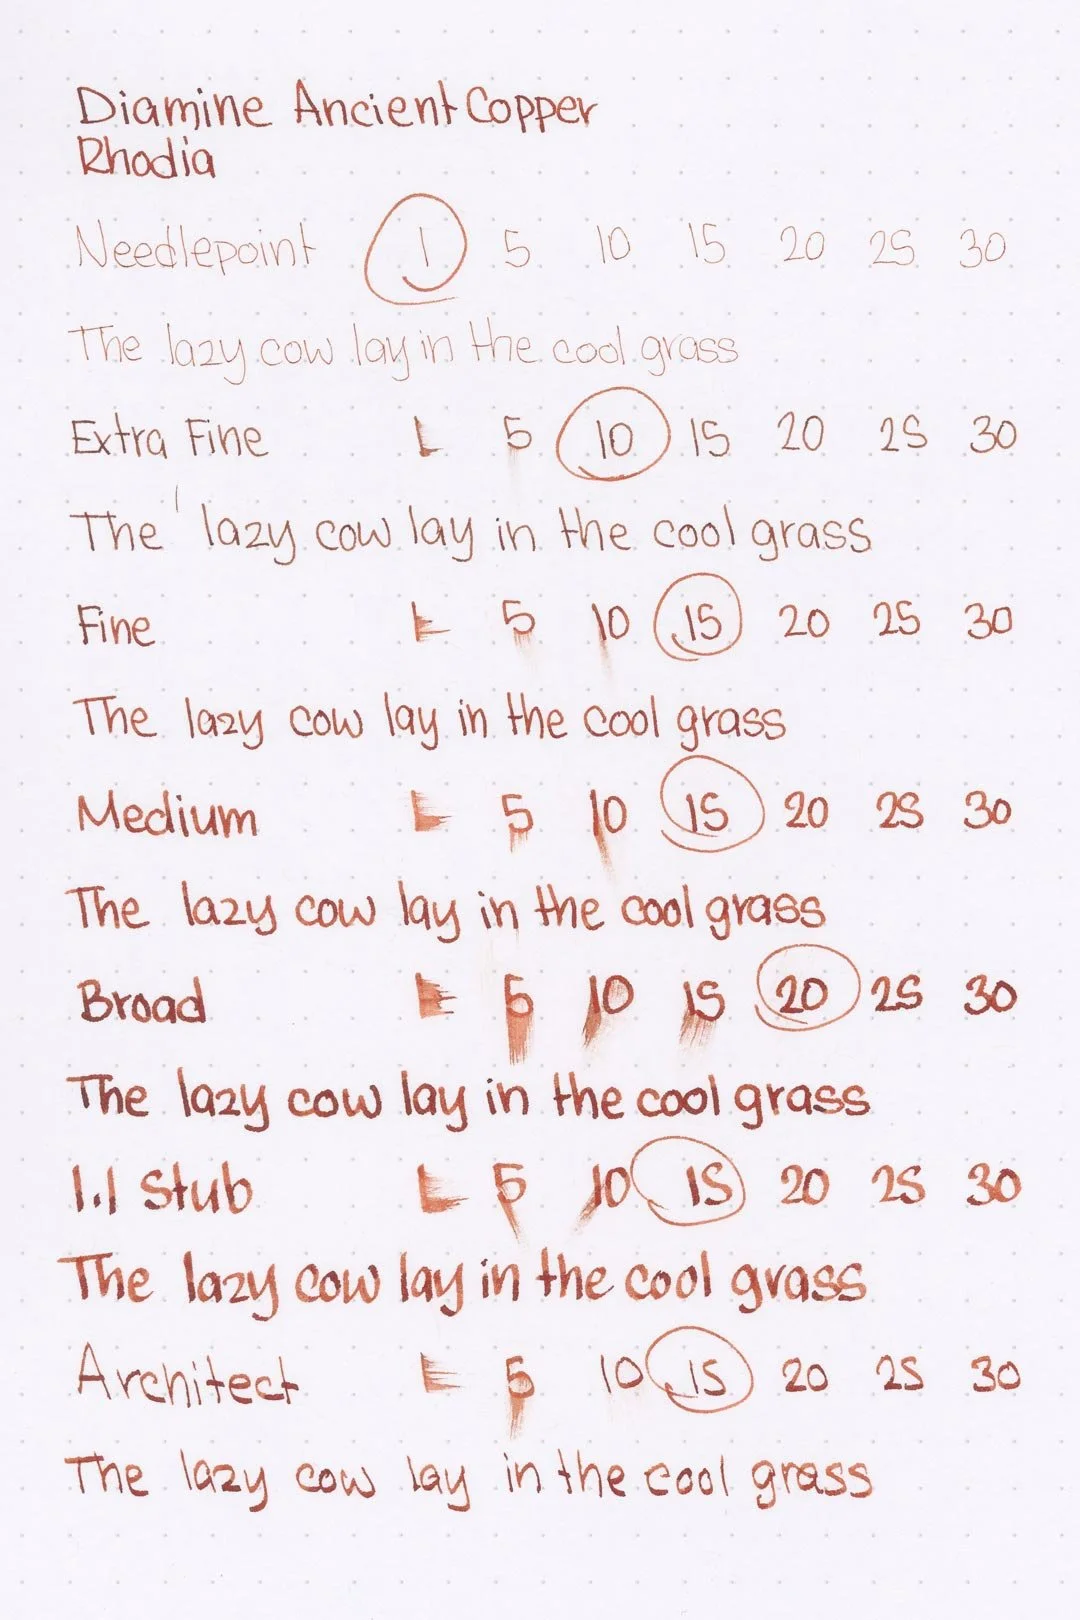 Diamine Ancient Copper
Rhodia
Needlepoint 1 5 10 15 20 25 30
The lazy cow lay in the cool grass
Extra Fine 1 5 10 15 20 25 30
The lazy cow lay in the cool grass
Fine 1 5 10 15 20 25 30
The lazy cow lay in the cool grass
Medium 1 5 10 15 20 25 30
The lazy cow lay in the cool grass
Broad 1 5 10 15 20 25 30
The lazy cow lay in the cool grass
1.1 Stub 1 5 10 15 20 25 30
The lazy cow lay in the cool grass
Architect 1 5 10 15 20 25 30
The lazy cow lay in the cool grass